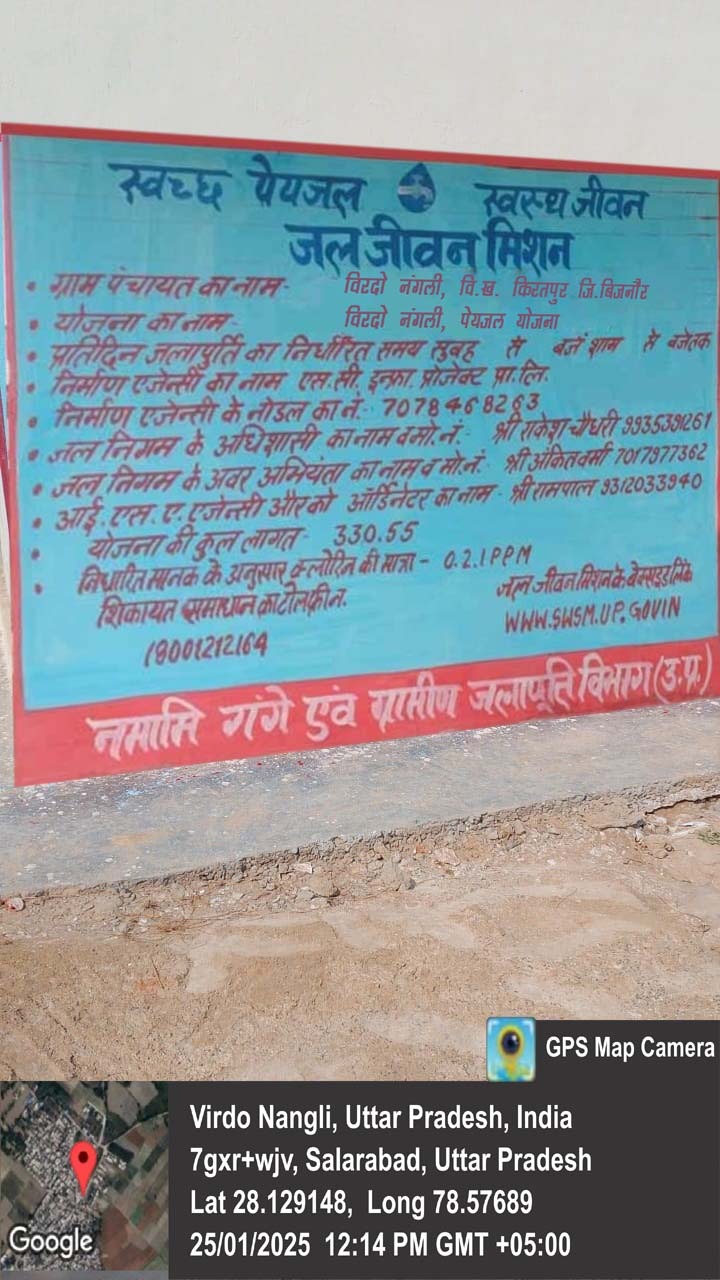 स्वच्छ पेयजल स्वस्थ जीवन
जल जीवन मिशन
• ग्राम पंचायत का नाम- विरदो नंगली, वि.ख. किरतपुर जि.बिजनौर
• योजना का नाम- विरदो नंगली, पेयजल योजना
• प्रतिदिन जलापुर्ति का निर्धारित समय सुबह से बजे शाम से बजेतक
• निर्माण एजेन्सी का नाम एस.सी. इन्फ्रा. प्रोजेक्ट प्रा.लि.
• निर्माण एजेन्सी के नोडल का नं.- 7078468263
• जल निगम के अधिशासी का नाम व मो.नं.- श्री राकेश चौधरी 9935391261
• जल निगम के अवर अभियंता का नाम व मो.नं.- श्री अंकित वर्मा 7017977362
• आई.एस.ए.एजेन्सी और को ऑर्डिनेटर का नाम- श्री रामपाल 9312033940
• योजना की कुल लागत- 330.55
• विधारित मानक के अनुसार क्लोरिन की मात्रा- 0.2.1PPM
शिकायत समाधान का टोलफ्रीन.
18001212164
जल जीवन मिशन के वेबसाइड लिंक
WWW.SWSM.UP.GOVIN
नमामि गंगे एवं ग्रामीण जलापूर्ति विभाग (उ.प्र.)
GPS Map Camera
Virdo Nangli, Uttar Pradesh, India
7gxr+wjv, Salarabad, Uttar Pradesh
Lat 28.129148, Long 78.57689
25/01/2025 12:14 PM GMT +05:00
Google